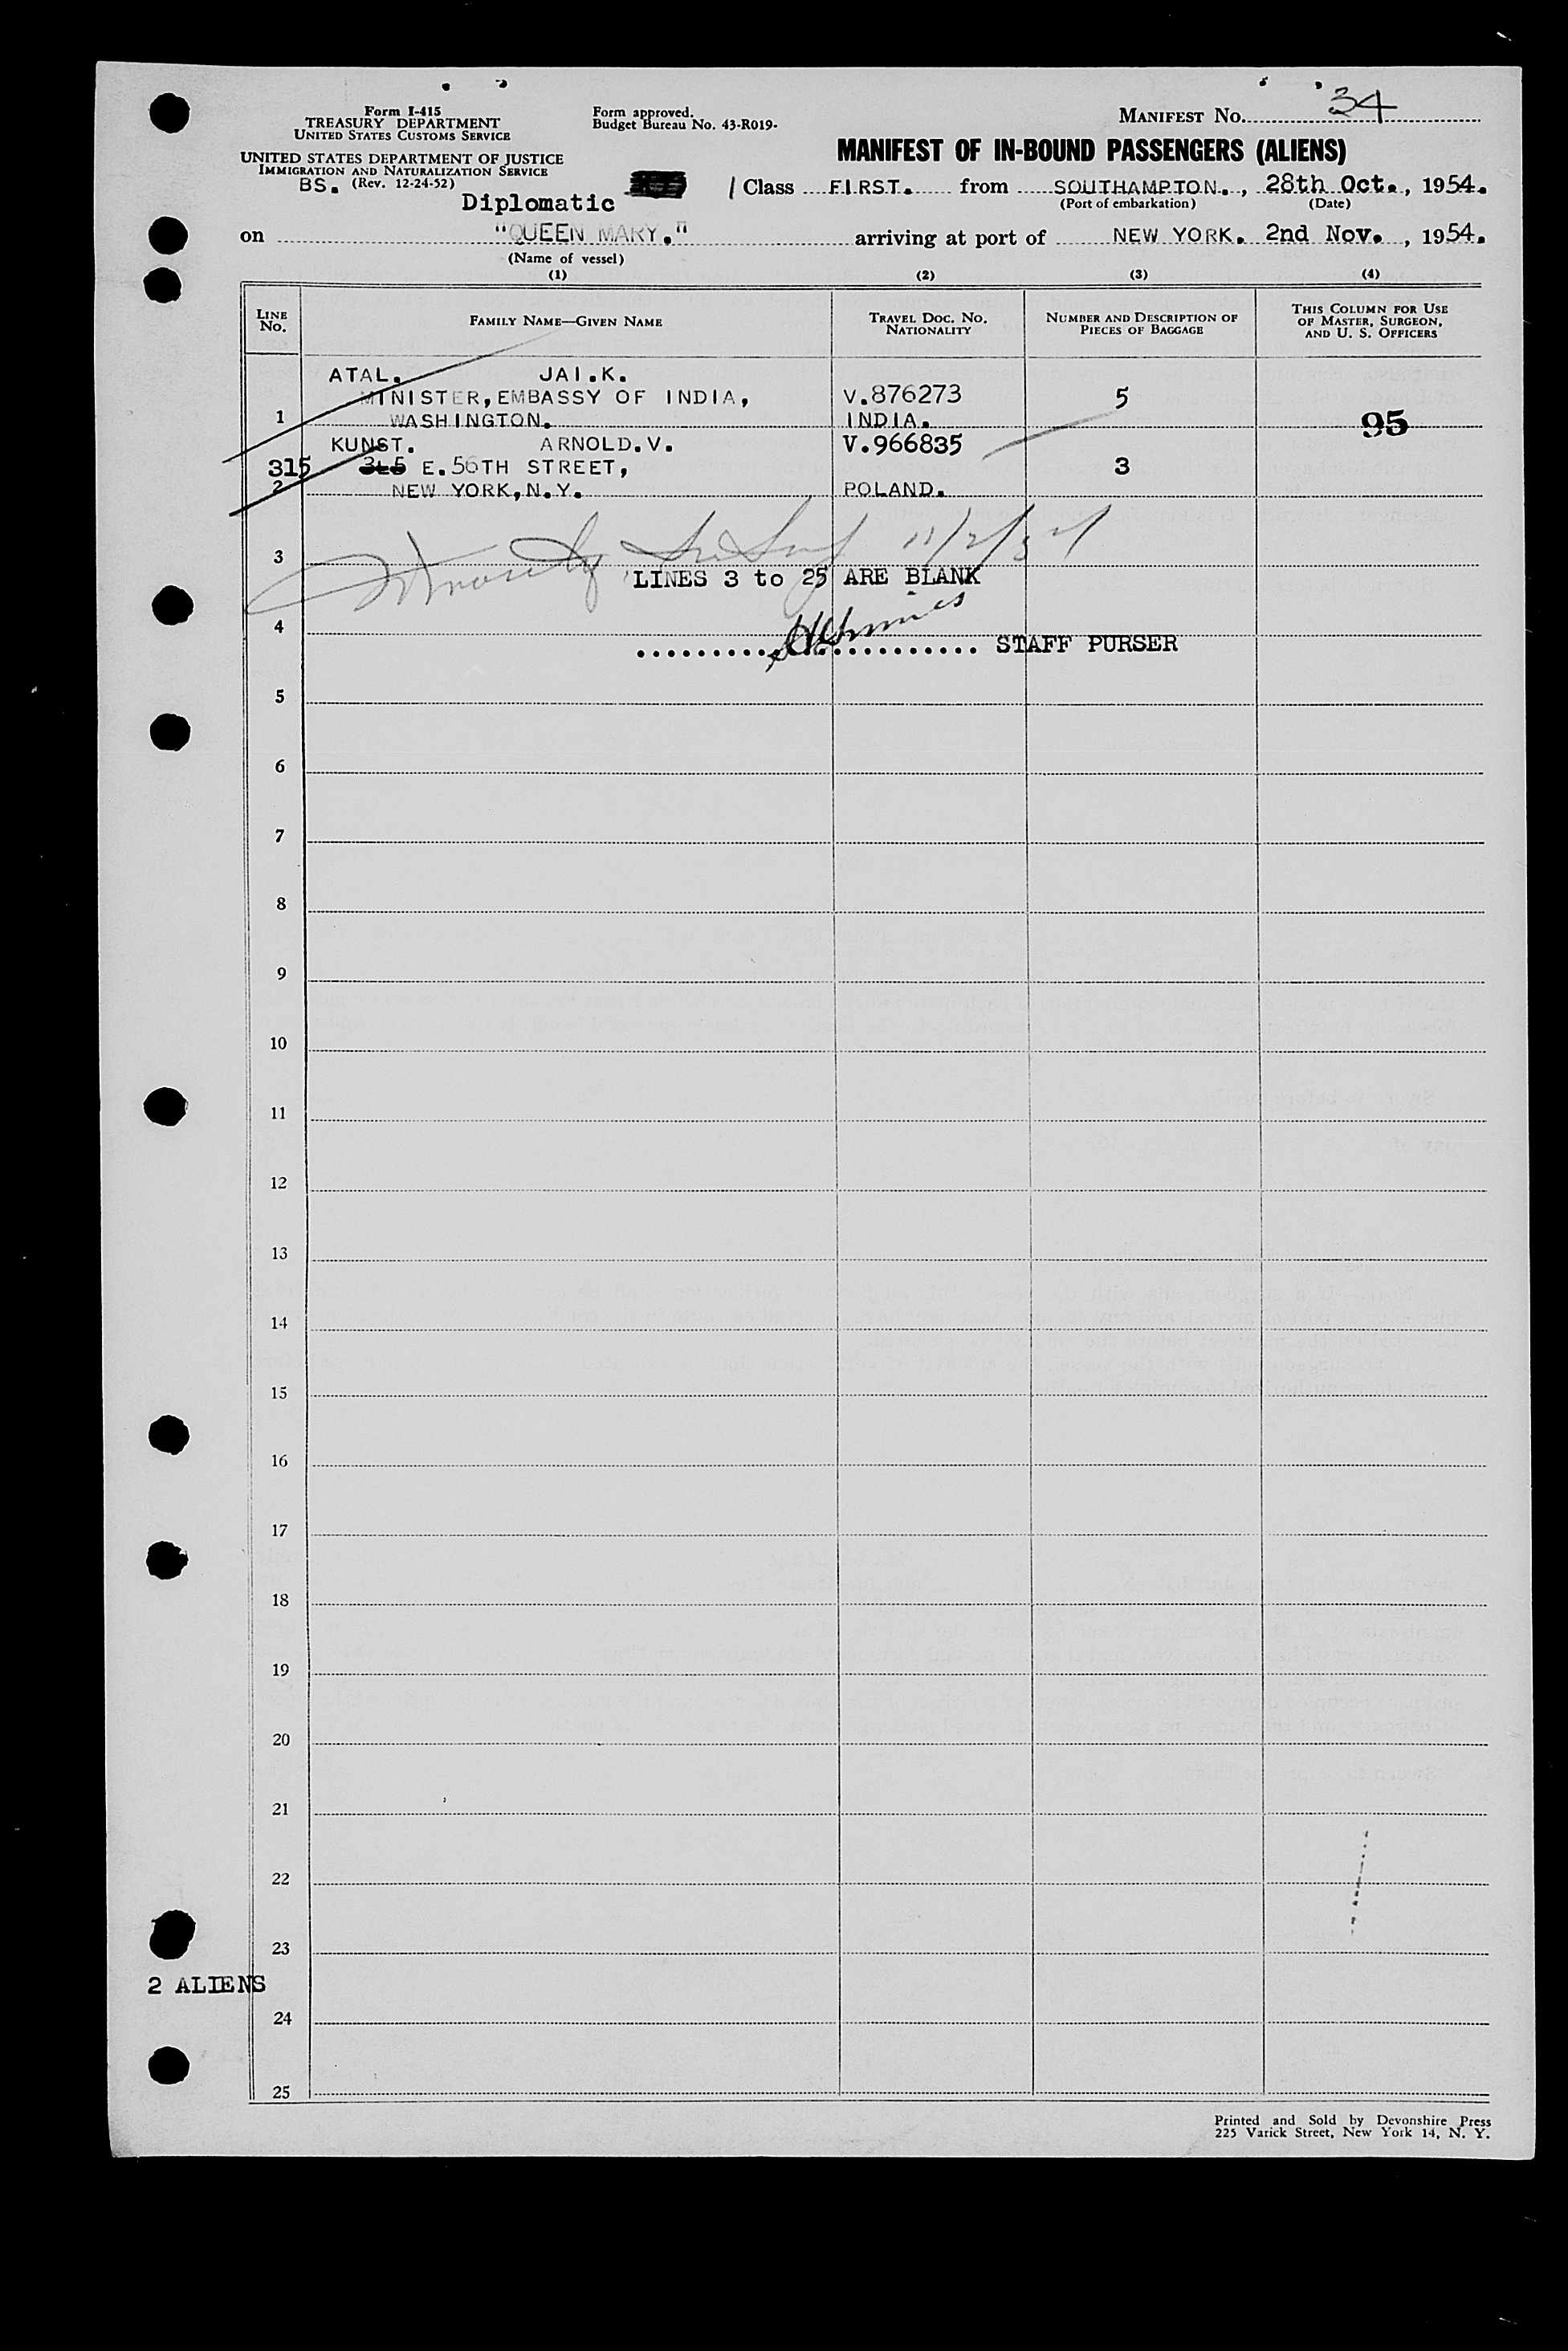 Form I-415
TREASURY DEPARTMENT
UNITED STATES CUSTOMS SERVICE
UNITED STATES DEPARTMENT OF JUSTICE
IMMIGRATION AND NATURALIZATION SERVICE
BS. (Rev. 12-24-52)
Form approved.
Budget Bureau No. 43-R019-
MANIFEST No. 34
MANIFEST OF IN-BOUND PASSENGERS (ALIENS)
Diplomatic Class FIRST. from SOUTHAMPTON., 28th Oct., 1954.
(Port of embarkation) (Date)
on "QUEEN MARY." arriving at port of NEW YORK. 2nd Nov., 1954.
(Name of vessel)
(1) (2) (3) (4)
LINE No. FAMILY NAME—GIVEN NAME TRAVEL DOC. No. NATIONALITY NUMBER AND DESCRIPTION OF PIECES OF BAGGAGE THIS COLUMN FOR USE OF MASTER, SURGEON, AND U. S. OFFICERS
ATAL. JAI.K.
MINISTER, EMBASSY OF INDIA, V.876273 5
1 WASHINGTON. INDIA. 95
KUNST. ARNOLD.V. V.966835
315 E.56TH STREET, 3
2 NEW YORK, N.Y. POLAND.
11/2/54
3
LINES 3 to 25 ARE BLANK
4
STAFF PURSER
5
6
7
8
9
10
11
12
13
14
15
16
17
18
19
20
21
22
23
2 ALIENS
24
25
Printed and Sold by Devonshire Press
225 Varick Street, New York 14, N. Y.